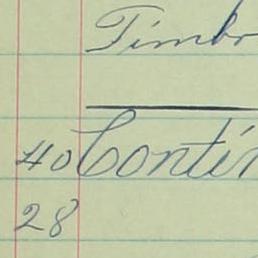 Timbr
40 Contin
28